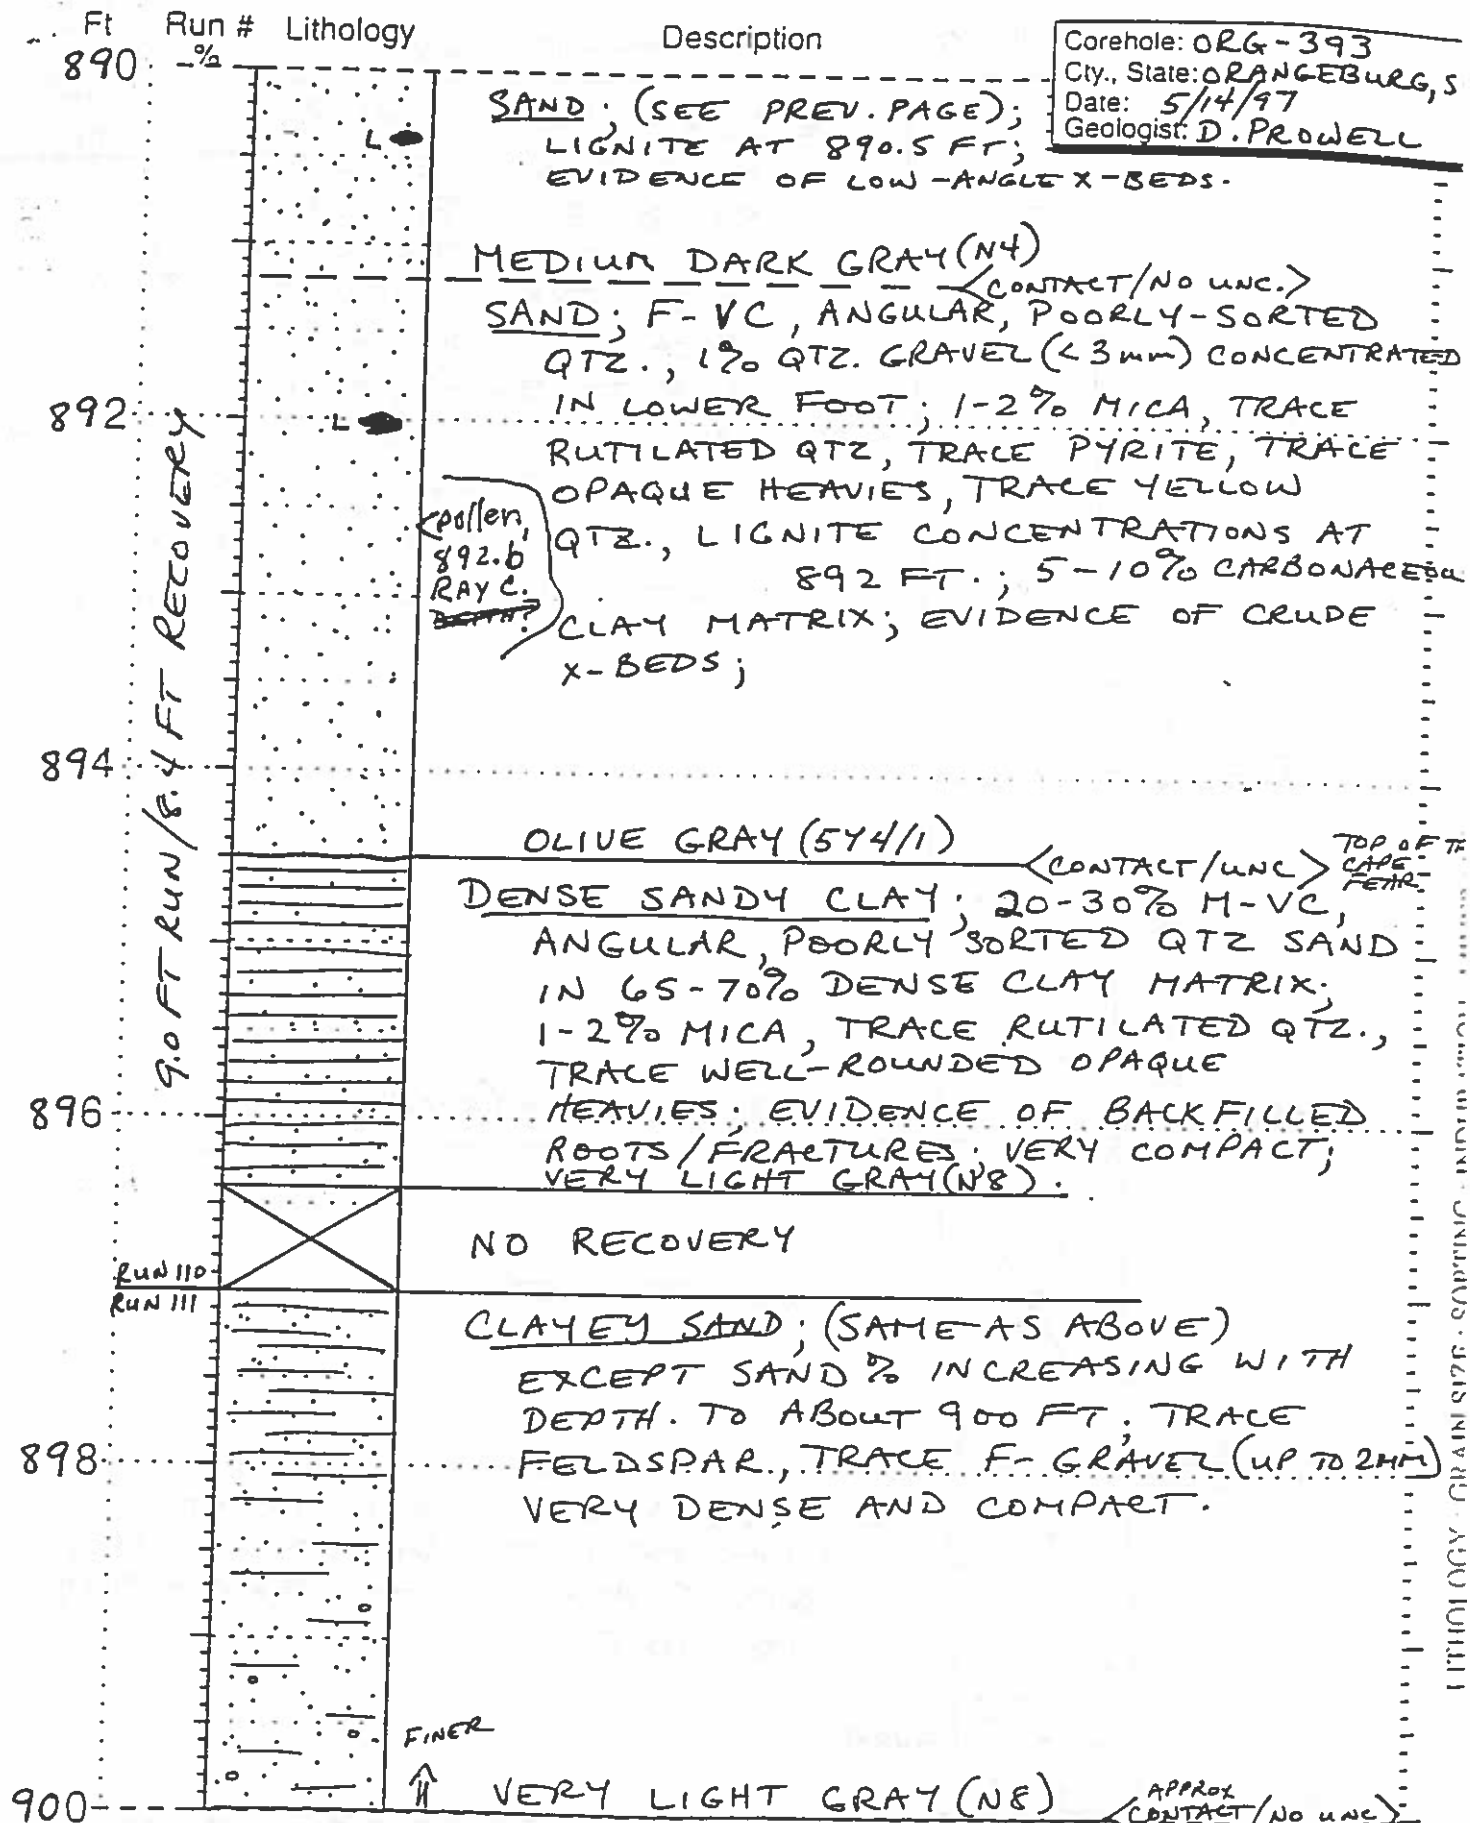 Ft Run # Lithology Description
%
Corehole: ORG-393
Cty., State: ORANGEBURG, S
Date: 5/14/97
Geologist: D. PROWELL
890
SAND; (SEE PREV. PAGE);
L
LIGNITE AT 890.5 FT;
EVIDENCE OF LOW-ANGLE X-BEDS.
MEDIUM DARK GRAY (N4)
<CONTACT/NO UNC.>
SAND; F-VC, ANGULAR, POORLY-SORTED
QTZ., 1% QTZ. GRAVEL (<3mm) CONCENTRATED
892
L
IN LOWER FOOT; 1-2% MICA, TRACE
RUTILATED QTZ, TRACE PYRITE, TRACE
OPAQUE HEAVIES, TRACE YELLOW
QTZ., LIGNITE CONCENTRATIONS AT
892 FT.; 5-10% CARBONACEOU
CLAY MATRIX; EVIDENCE OF CRUDE
X-BEDS;
<pollen,
892.6
RAY C.
DEPTH?
9.0 FT RUN/8.4 FT RECOVERY
894
OLIVE GRAY (5Y4/1)
<CONTACT/UNC>
TOP OF TH
CAPE
FEAR
DENSE SANDY CLAY; 20-30% M-VC,
ANGULAR, POORLY SORTED QTZ SAND
IN 65-70% DENSE CLAY MATRIX;
1-2% MICA, TRACE RUTILATED QTZ.,
TRACE WELL-ROUNDED OPAQUE
896
HEAVIES; EVIDENCE OF BACKFILLED
ROOTS/FRACTURES; VERY COMPACT;
VERY LIGHT GRAY (N8).
NO RECOVERY
RUN 110
RUN 111
CLAYEY SAND; (SAME AS ABOVE)
EXCEPT SAND % INCREASING WITH
DEPTH. TO ABOUT 900 FT; TRACE
898
FELDSPAR, TRACE F-GRAVEL (UP TO 2MM)
VERY DENSE AND COMPACT.
FINER
900
VERY LIGHT GRAY (N8)
APPROX
<CONTACT/NO UNC>
LITHOLOGY · GRAIN SIZE · SORTING